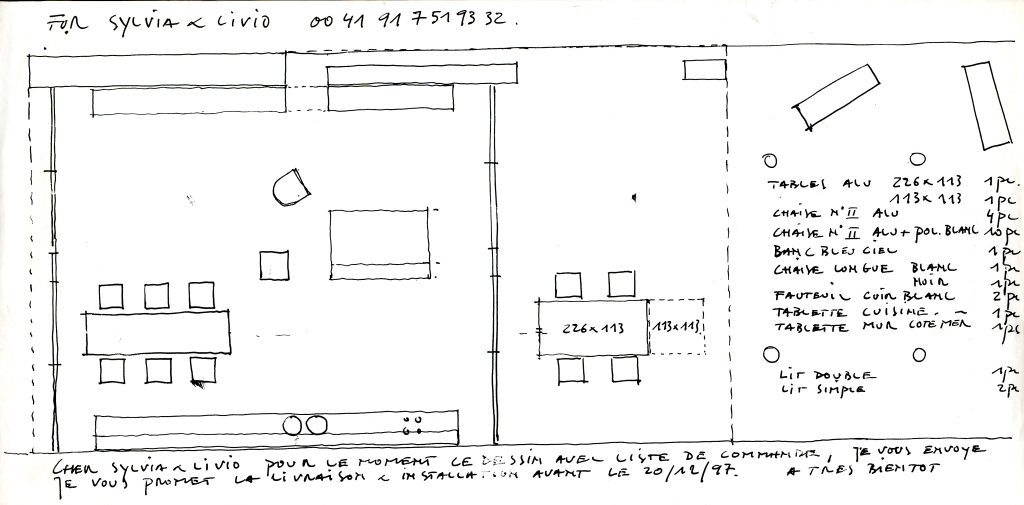 FÜR SYLVIA & LIVIO 00 41 91 7519332.
TABLES ALU 226x113 1pc.
113x113 1pc
CHAISE N°II ALU 4pc
CHAISE N°II ALU + POL. BLANC 10pc
BANC BLEU CIEL 1pc
CHAISE LONGUE BLANC 1pc
NOIR 1pc
FAUTEUIL CUIR BLANC 2pc
TABLETTE CUISINE. ~ 1pc
TABLETTE MUR COTE MER 1pc
226x113 113x113
LIT DOUBLE 1pc
LIT SIMPLE 2pc
CHER SYLVIA & LIVIO POUR LE MOMENT LE DESSIN AVEC LISTE DE COMMANDE, JE VOUS ENVOYE
JE VOUS PROMET LA LIVRAISON & INSTALLATION AVANT LE 20/12/97. A TRES BIENTOT